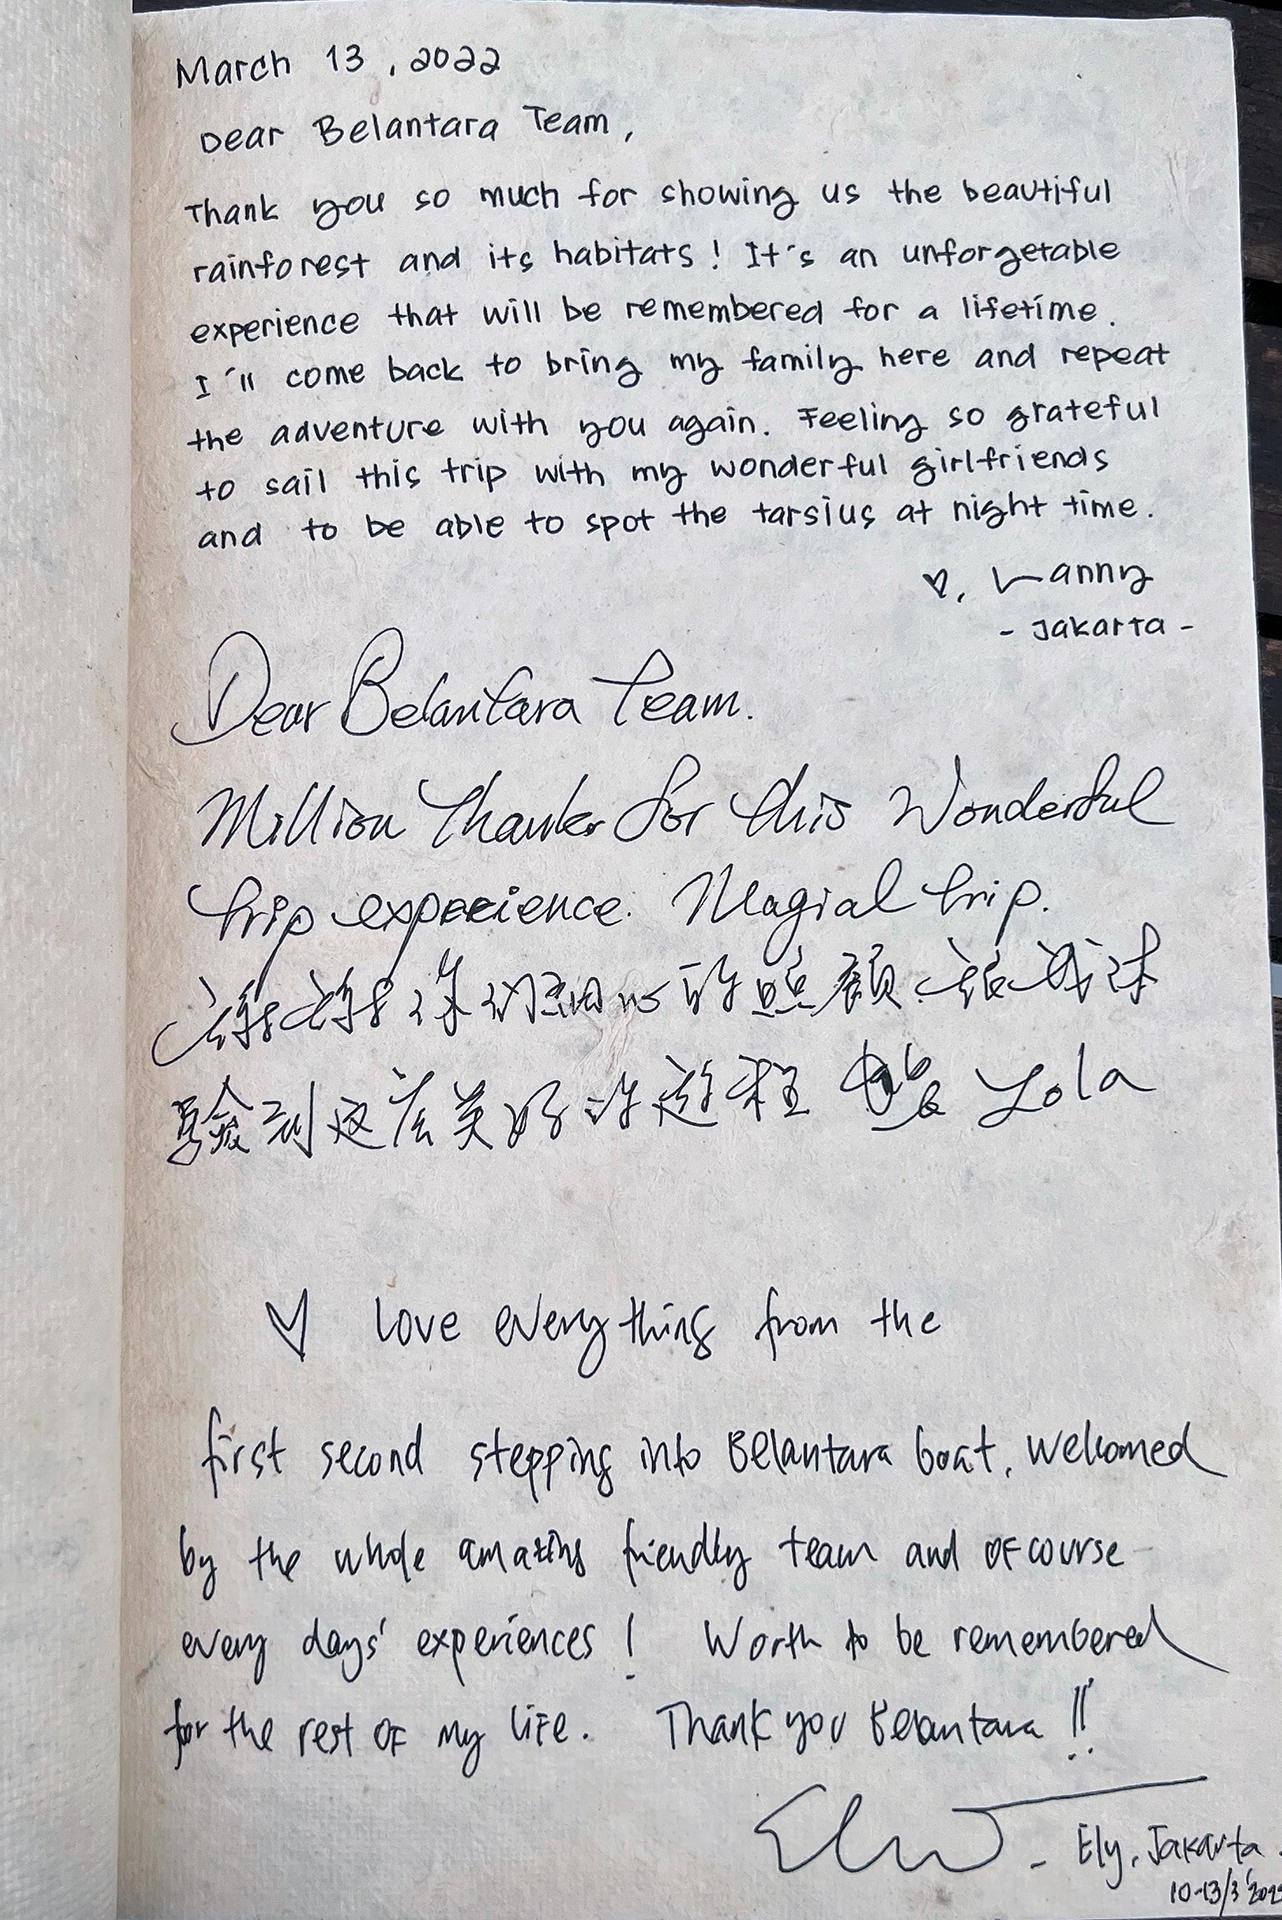 March 13, 2022
Dear Belantara Team,
Thank you so much for showing us the beautiful
rainforest and its habitats! It's an unforgetable
experience that will be remembered for a lifetime.
I'll come back to bring my family here and repeat
the adventure with you again. Feeling so grateful
to sail this trip with my wonderful girlfriends
and to be able to spot the tarsius at night time.
♡, Lanny
- Jakarta -
Dear Belantara Team.
Million Thanks for this Wonderful
trip experience. Magial trip.
谢谢你们细心的照顾. 让我体
验到这么美好的游程 Lola
♡ Love everything from the
first second stepping into Belantara boat, welcomed
by the whole amazing friendly team and of course
every days' experiences! Worth to be remembered
for the rest of my life. Thank you Belantara!!
- Ely, Jakarta.
10-13/3'202